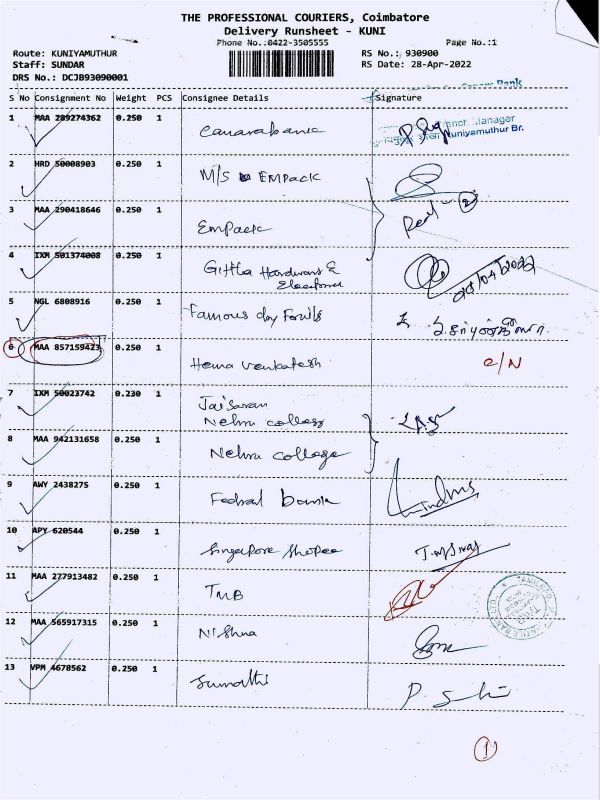 THE PROFESSIONAL COURIERS, Coimbatore
Delivery Runsheet - KUNI
Phone No.:0422-3505555 Page No.:1
Route: KUNIYAMUTHUR RS No.: 930900
Staff: SUNDAR RS Date: 28-Apr-2022
DRS No.: DCJB93090001
Bank
S No Consignment No Weight PCS Consignee Details Signature
1 MAA 289274362 0.250 1 Canarabank
Manager
Kuniyamuthur Br.
2 HRD 50008903 0.250 1 M/S EMPACK
3 MAA 290418646 0.250 1 Empack
4 IXM 501374008 0.250 1 Giftla Hardwares &
5 NGL 6808916 0.250 1 Famous day
6 MAA 857159423 0.250 1 Hema Venkatesh C/N
7 IXM 50023742 0.230 1 Jaisaran
Nehru college
8 MAA 942131658 0.250 1 Nehru college
9 AWY 2438275 0.250 1 Fedral bank
10 APY 620544 0.250 1 Singapore Shopee
11 MAA 277913482 0.250 1 TMB
12 MAA 565917315 0.250 1 Nishna
13 VPM 4678562 0.250 1 Sumathi
1